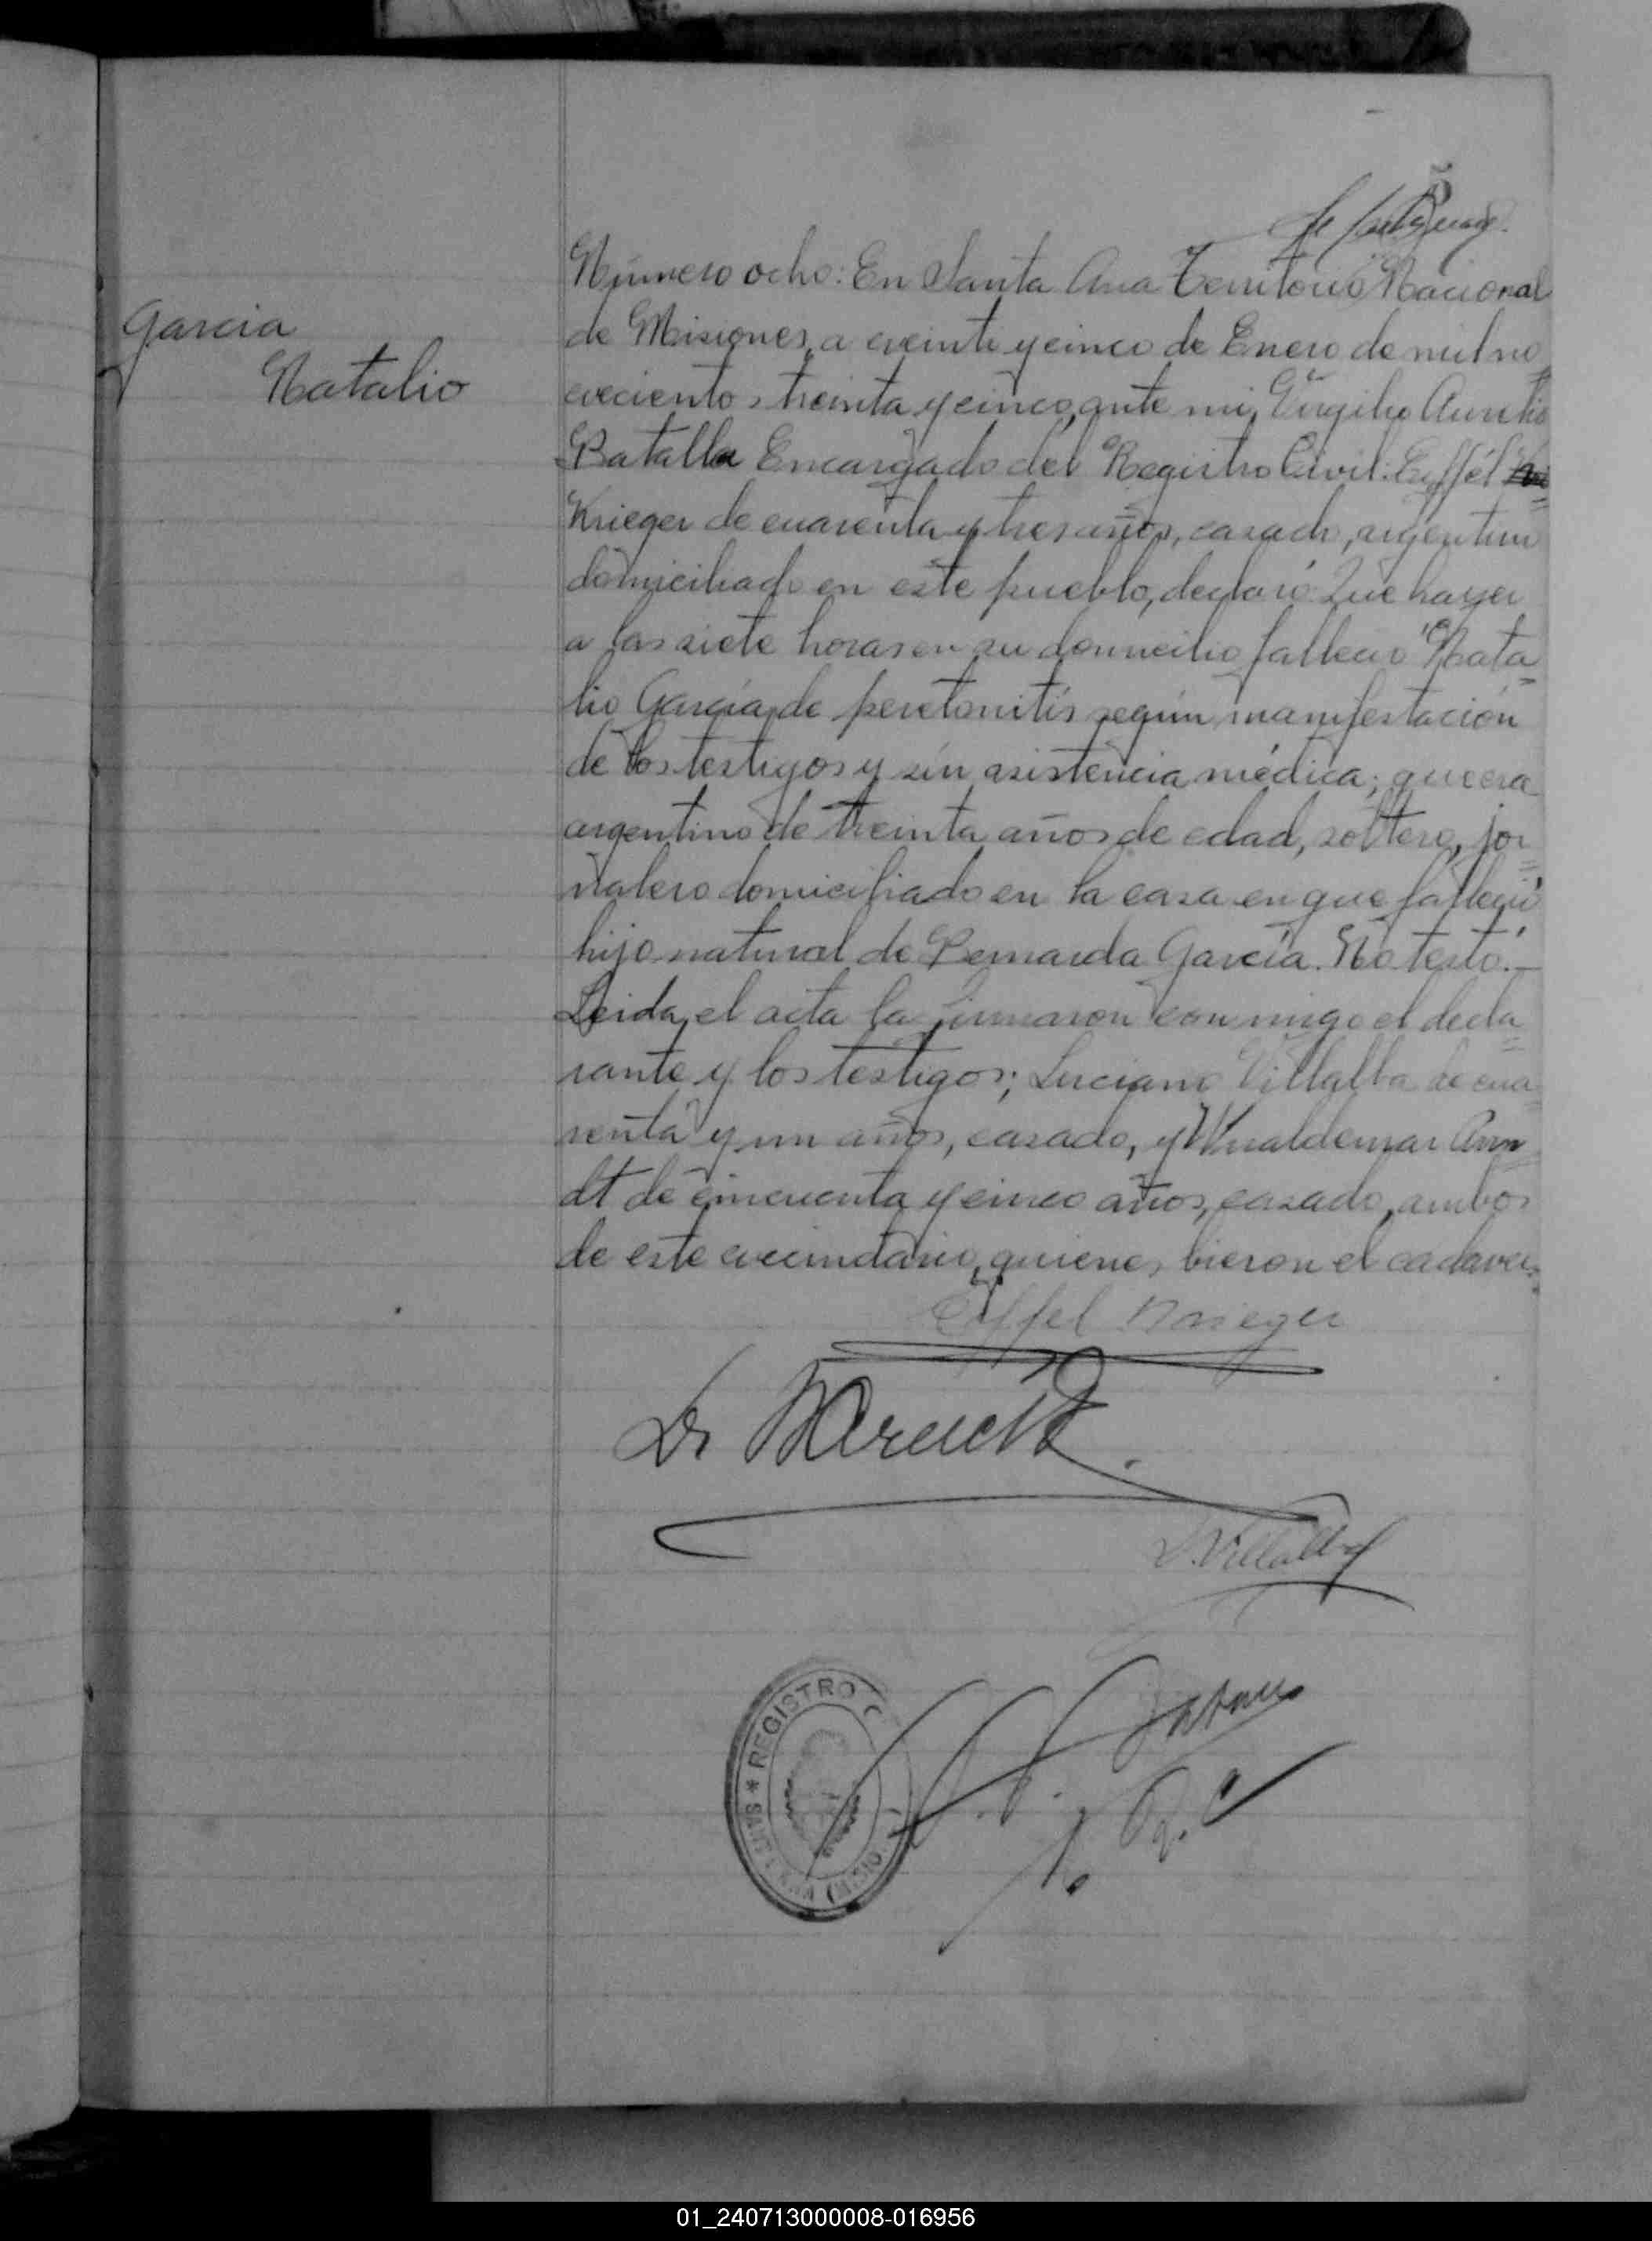 5
Garcia
Natalio
Número ocho: En Santa Ana Territorio Nacional
de Misiones, a veinte y cinco de Enero de mil no_
vecientos treinta y cinco, ante mi, Virgilio Aurelio
Batalla Encargado del Registro Civil: Eiffél
Krieger de cuarenta y tres años, casado, argentino
domiciliado en este pueblo, declaró: Que hayer
a las siete horas en su domicilio falleció "Nata=
lio García, de peretonitis según manifestación
de los testigos y sin asistencia médica; que era
argentino de treinta años de edad, soltero, jor=
nalero domiciliado en la casa en que falleció
hijo natural de Bernarda García. No testó.—
Leida, el acta la firmaron con migo el decla=
rante y los testigos; Luciano Villalba de cua=
renta y un años, casado, y Wualdemar Arn=
dt de cincuenta y cinco años, casado, ambos
de este vecindario, quienes bieron el cadaver.
Eiffel Krieger
L. Villalba
* REGISTRO C
SANTA ANA (MISIO
R. C
01_240713000008-016956